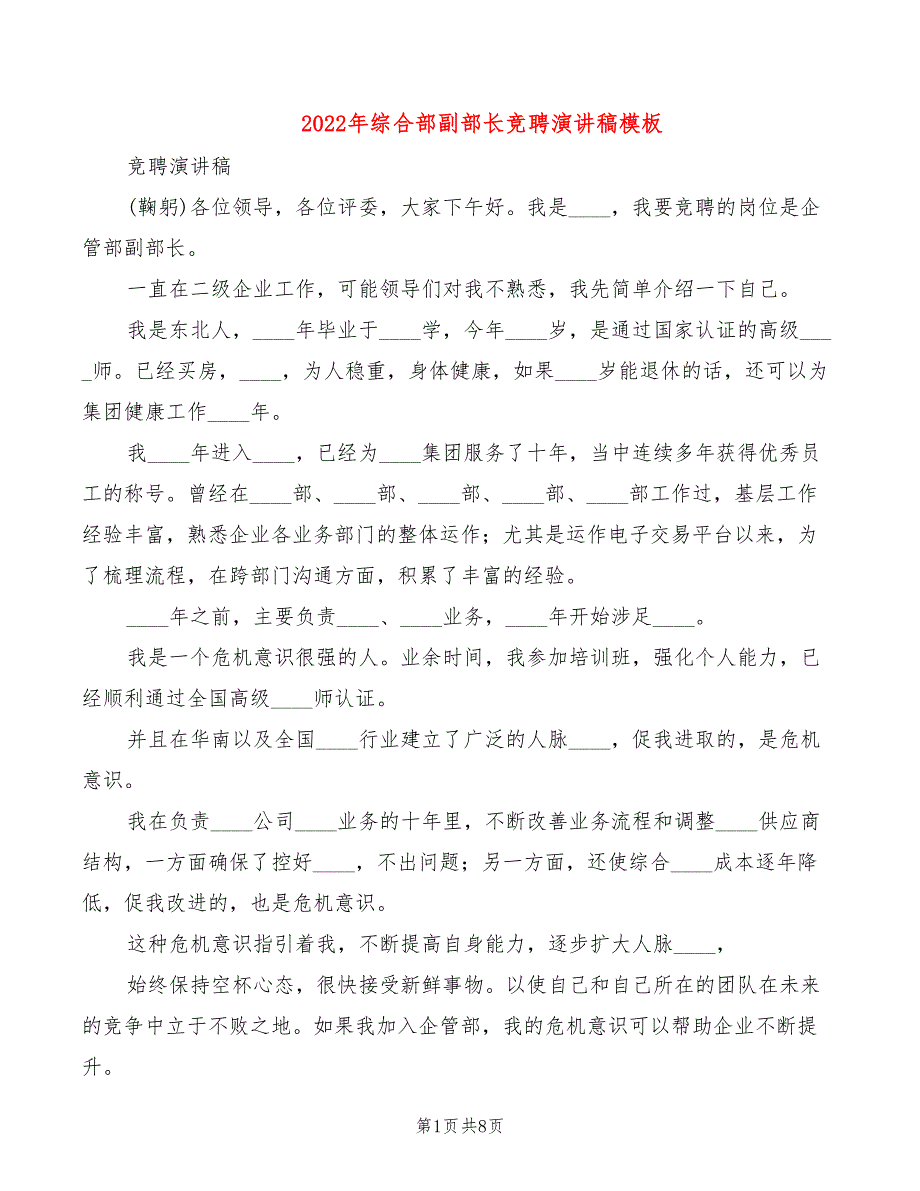 2022年综合部副部长竞聘演讲稿模板
竞聘演讲稿
(鞠躬)各位领导，各位评委，大家下午好。我是____，我要竞聘的岗位是企
管部副部长。
一直在二级企业工作，可能领导们对我不熟悉，我先简单介绍一下自己。
我是东北人，____年毕业于____学，今年____岁，是通过国家认证的高级___
_师。已经买房，____，为人稳重，身体健康，如果____岁能退休的话，还可以为
集团健康工作____年。
我____年进入____，已经为____集团服务了十年，当中连续多年获得优秀员
工的称号。曾经在____部、____部、____部、____部、____部工作过，基层工作
经验丰富，熟悉企业各业务部门的整体运作；尤其是运作电子交易平台以来，为
了梳理流程，在跨部门沟通方面，积累了丰富的经验。
____年之前，主要负责____、____业务，____年开始涉足____。
我是一个危机意识很强的人。业余时间，我参加培训班，强化个人能力，已
经顺利通过全国高级____师认证。
并且在华南以及全国____行业建立了广泛的人脉____，促我进取的，是危机
意识。
我在负责____公司____业务的十年里，不断改善业务流程和调整____供应商
结构，一方面确保了控好____，不出问题；另一方面，还使综合____成本逐年降
低，促我改进的，也是危机意识。
这种危机意识指引着我，不断提高自身能力，逐步扩大人脉____，
始终保持空杯心态，很快接受新鲜事物。以使自己和自己所在的团队在未来
的竞争中立于不败之地。如果我加入企管部，我的危机意识可以帮助企业不断提
升。
第1页 共8页